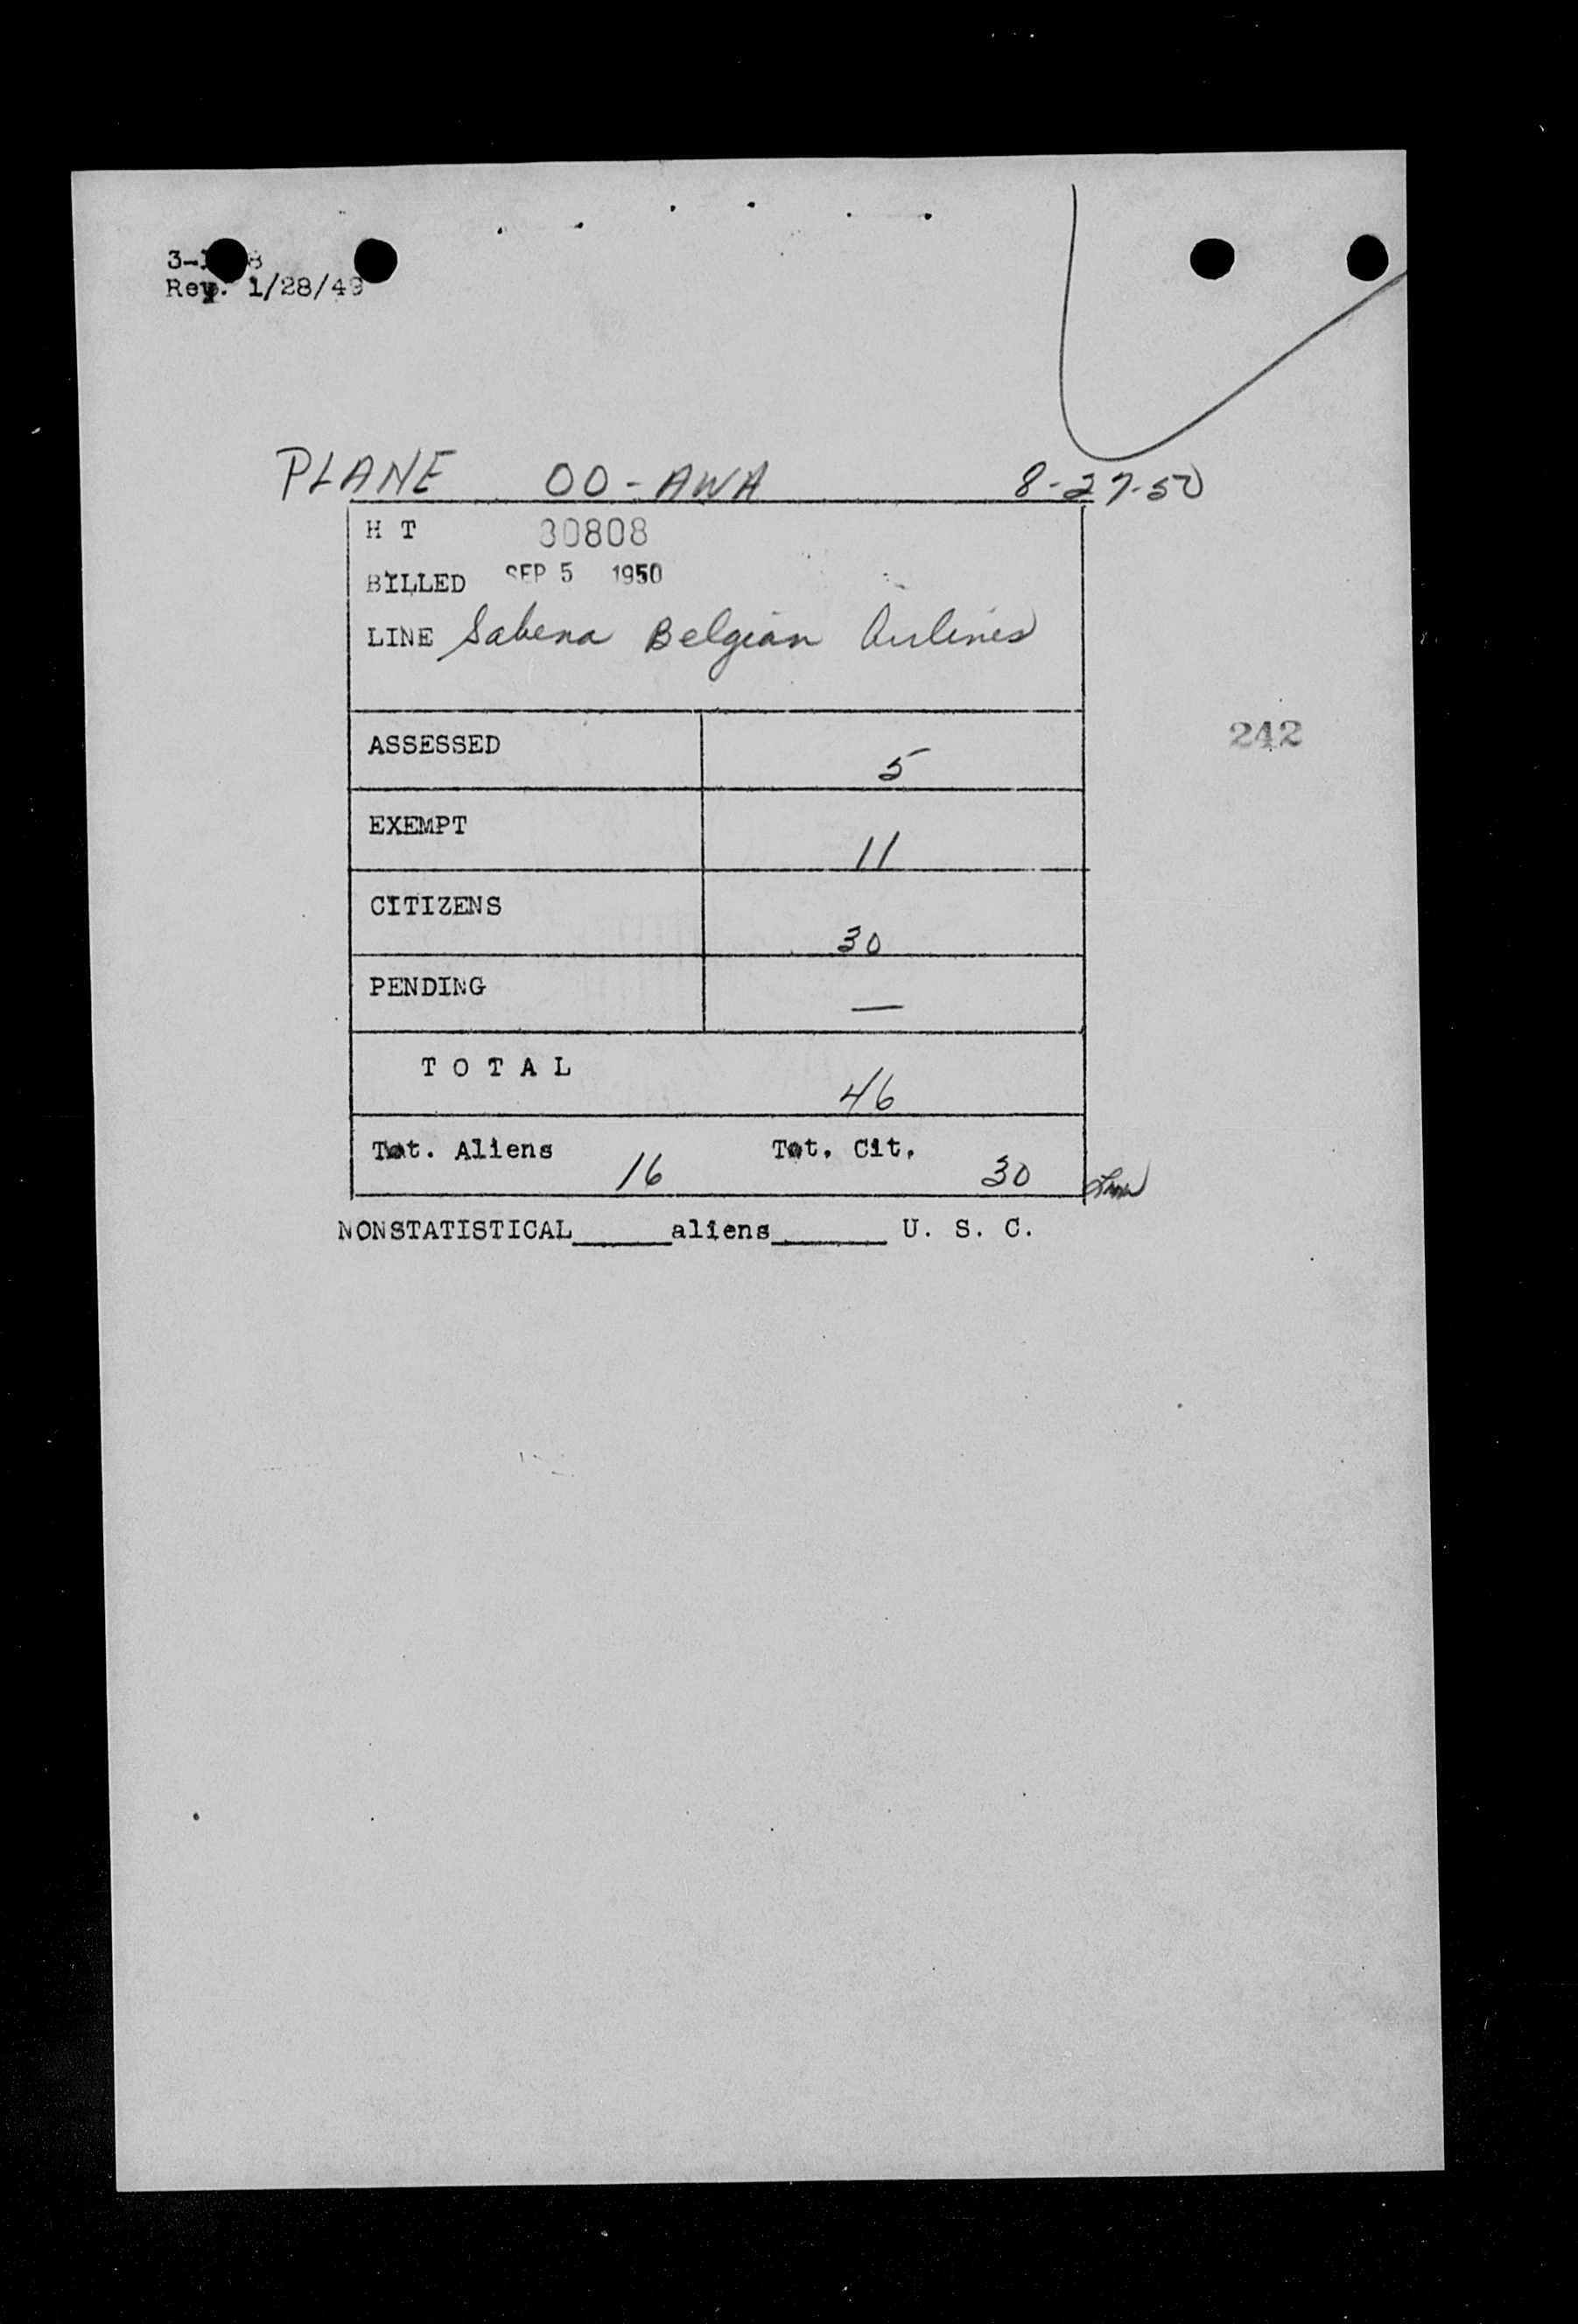 Rev. 1/28/49
PLANE OO-AWA 8-27-50
H T 30808
BILLED SEP 5 1950
LINE Sabena Belgian Airlines
242
ASSESSED 5
EXEMPT 11
CITIZENS 30
PENDING —
T O T A L 46
Tot. Aliens 16 Tot. Cit. 30
NONSTATISTICAL______aliens_______ U. S. C.